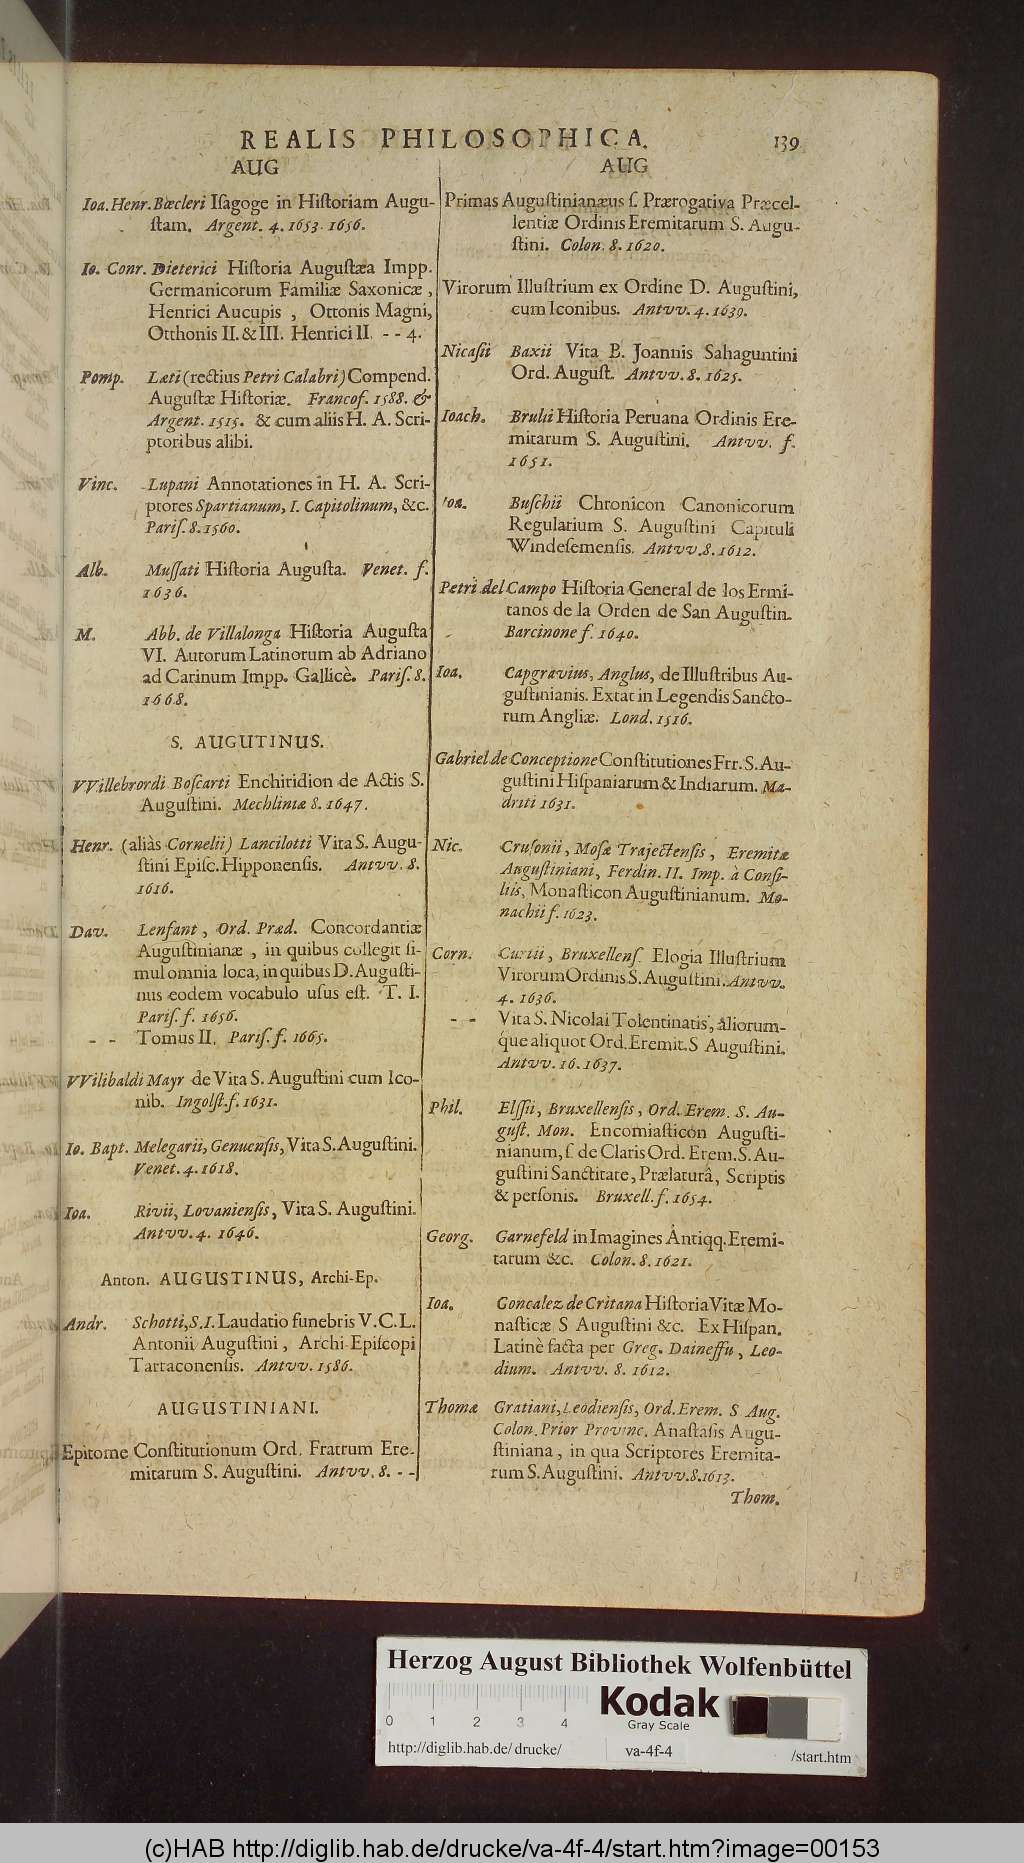 REALIS PHILOSOPHICA. 139
AUG
Ioa. Henr. Bœcleri Iſagoge in Hiſtoriam Augu-
ſtam. Argent. 4. 1653. 1656.
Io. Conr. Dieterici Hiſtoria Auguſtæa Impp.
Germanicorum Familiæ Saxonicæ,
Henrici Aucupis, Ottonis Magni,
Otthonis II. & III. Henrici II. - - 4.
Pomp. Læti (rectius Petri Calabri) Compend.
Auguſtæ Hiſtoriæ. Francof. 1588. &
Argent. 1515. & cum aliis H. A. Scri-
ptoribus alibi.
Vinc. Lupani Annotationes in H. A. Scri-
ptores Spartianum, I. Capitolinum, &c.
Pariſ. 8. 1560.
Alb. Muſſati Hiſtoria Auguſta. Venet. f.
1636.
M. Abb. de Villalonga Hiſtoria Auguſta
VI. Autorum Latinorum ab Adriano
ad Carinum Impp. Gallicè. Pariſ. 8.
1668.
S. AUGUTINUS.
VVillebrordi Boſcarti Enchiridion de Actis S.
Auguſtini. Mechliniæ 8. 1647.
Henr. (aliàs Cornelii) Lancilotti Vita S. Augu-
ſtini Epiſc. Hipponenſis. Antvv. 8.
1616.
Dav. Lenfant, Ord. Præd. Concordantiæ
Auguſtinianæ, in quibus collegit ſi-
mul omnia loca, in quibus D. Auguſti-
nus eodem vocabulo uſus eſt. T. I.
Pariſ. f. 1656.
- - Tomus II. Pariſ. f. 1665.
VVilibaldi Mayr de Vita S. Auguſtini cum Ico-
nib. Ingolſt. f. 1631.
Io. Bapt. Melegarii, Genuenſis, Vita S. Auguſtini.
Venet. 4. 1618.
Ioa. Rivii, Lovanienſis, Vita S. Auguſtini.
Antvv. 4. 1646.
Anton. AUGUSTINUS, Archi-Ep.
Andr. Schotti, S. I. Laudatio funebris V. C. L.
Antonii Auguſtini, Archi-Epiſcopi
Tarraconenſis. Antvv. 1586.
AUGUSTINIANI.
Epitome Conſtitutionum Ord. Fratrum Ere-
mitarum S. Auguſtini. Antvv. 8. - -
AUG
Primas Auguſtinianæus ſ. Prærogativa Præcel-
lentiæ Ordinis Eremitarum S. Augu-
ſtini. Colon. 8. 1620.
Virorum Illuſtrium ex Ordine D. Auguſtini,
cum Iconibus. Antvv. 4. 1639.
Nicaſii Baxii Vita B. Joannis Sahaguntini
Ord. Auguſt. Antvv. 8. 1625.
Ioach. Brulii Hiſtoria Peruana Ordinis Ere-
mitarum S. Auguſtini. Antvv. f.
1651.
Ioa. Buſchii Chronicon Canonicorum
Regularium S. Auguſtini Capituli
Windeſemenſis. Antvv. 8. 1612.
Petri del Campo Hiſtoria General de los Ermi-
tanos de la Orden de San Auguſtin.
Barcinone f. 1640.
Ioa. Capgravius, Anglus, de Illuſtribus Au-
guſtinianis. Extat in Legendis Sancto-
rum Angliæ. Lond. 1516.
Gabriel de Conceptione Conſtitutiones Frr. S. Au-
guſtini Hiſpaniarum & Indiarum. Ma-
driti 1631.
Nic. Cruſonii, Moſæ Trajectenſis, Eremitæ
Auguſtiniani, Ferdin. II. Imp. à Conſi-
liis, Monaſticon Auguſtinianum. Mo-
nachii f. 1623.
Corn. Curtii, Bruxellenſ. Elogia Illuſtrium
Virorum Ordinis S. Auguſtini. Antvv.
4. 1636.
- - Vita S. Nicolai Tolentinatis, aliorum-
que aliquot Ord. Eremit. S Auguſtini.
Antvv. 16. 1637.
Phil. Elſſii, Bruxellenſis, Ord. Erem. S. Au-
guſt. Mon. Encomiaſticon Auguſti-
nianum, ſ de Claris Ord. Erem. S. Au-
guſtini Sanctitate, Prælaturâ, Scriptis
& perſonis. Bruxell. f. 1654.
Georg. Garnefeld in Imagines Antiqq. Eremi-
tarum &c. Colon. 8. 1621.
Ioa. Goncalez de Critana Hiſtoria Vitæ Mo-
naſticæ S Auguſtini &c. Ex Hiſpan.
Latinè facta per Greg. Daineffu, Leo-
dium. Antvv. 8. 1612.
Thomæ Gratiani, Leodienſis, Ord. Erem. S Aug.
Colon. Prior Provinc. Anaſtaſis Augu-
ſtiniana, in qua Scriptores Eremita-
rum S. Auguſtini. Antvv. 8. 1613.
Thom.
Herzog August Bibliothek Wolfenbüttel
0 1 2 3 4
Kodak
Gray Scale
http://diglib.hab.de/drucke/ va-4f-4 /start.htm
(c)HAB http://diglib.hab.de/drucke/va-4f-4/start.htm?image=00153